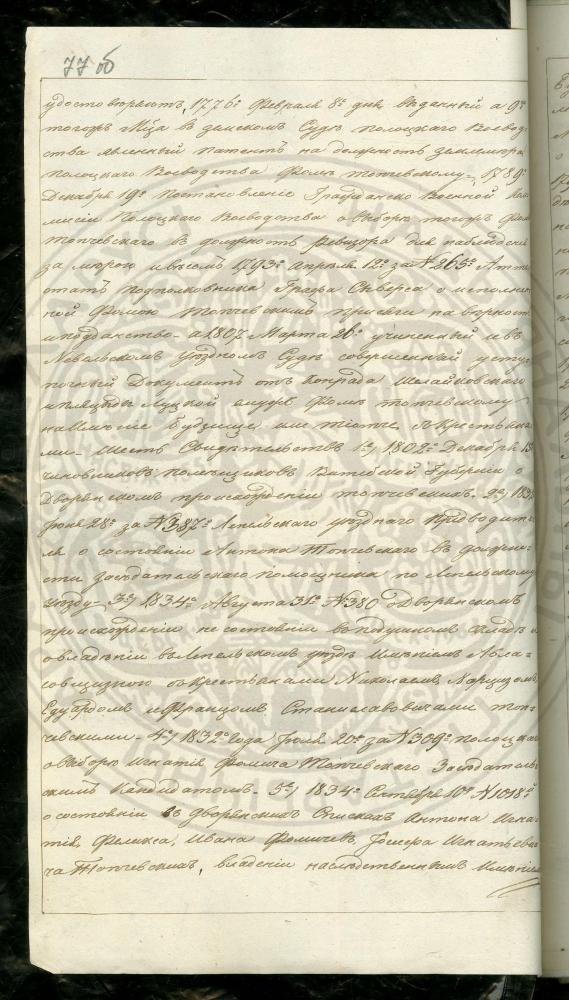 77 об
удостовѣряютъ, 1776го Февраля 8го дня выданный а 9го
тогожъ Мца въ земскомъ Судѣ Полоцкаго Воевод-
ства явленный патентъ на должность землемѣра
Полоцкаго Воеводства Фомѣ Топчевскому, 1789го
Декабря 19го Постановленіе Гражданско Военной Ком-
мисіи Полоцкаго Воеводства о выборѣ тогожъ Фомы
Топчевскаго въ должность Ревизора для наблюденія
за мѣрою и вѣсомъ 1793го Апреля 12го за № 265м Атте-
статъ Подполковника Графа Сиверса о исполнен-
ной Фомою Топчевскимъ присяги на верность
и подданство – а 1807 Марта 26го учиненный и въ
Невельскомъ уездномъ Судѣ совершенный усту-
почный Документъ отъ Конрада
Луцкой Фомѣ Топчевскому
на Имѣніе Будзище или съ крестьяна-
ми – шесть Свидѣтельствъ 1е) 1802го Декабря 13
чиновниковъ помѣщиковъ Витебской Губерніи о
Дворянскомъ происхожденіи Топчевскихъ. 2е) 183
Іюня 28го за № 387м Лепельскаго уезднаго Предводите-
ля о состояніи Антона Топчевскаго въ должно-
сти засѣдательскаго помощника по Лепельскому
уезду – 3е) 1834го Августа 31го № 380 о Дворянскомъ
происхожденіи не состояніи въ подушномъ окладѣ и
о владѣніи въ Лепельскомъ уездѣ Имѣніемъ Абла-
совщизною съ крестьянами Николаемъ, Нарцизомъ
Едуардомъ и Францомъ Станиславовичами Топ-
чевскими – 4е) 1832го года Іюля 20го за № 309м Полоцкаго
о выборѣ Игнатія Фомича Топчевскаго Засѣдатель-
скимъ Кандидатомъ – 5е) 1834го Октября 10го № 1018м
о состояніи въ дворянскихъ Спискахъ Антона Игна-
тія, Феликса, Ивана Фомичей, Іосифа Игнатьеви-
ча Топчевскихъ, владѣніи наслѣдственнымъ Имѣніемъ